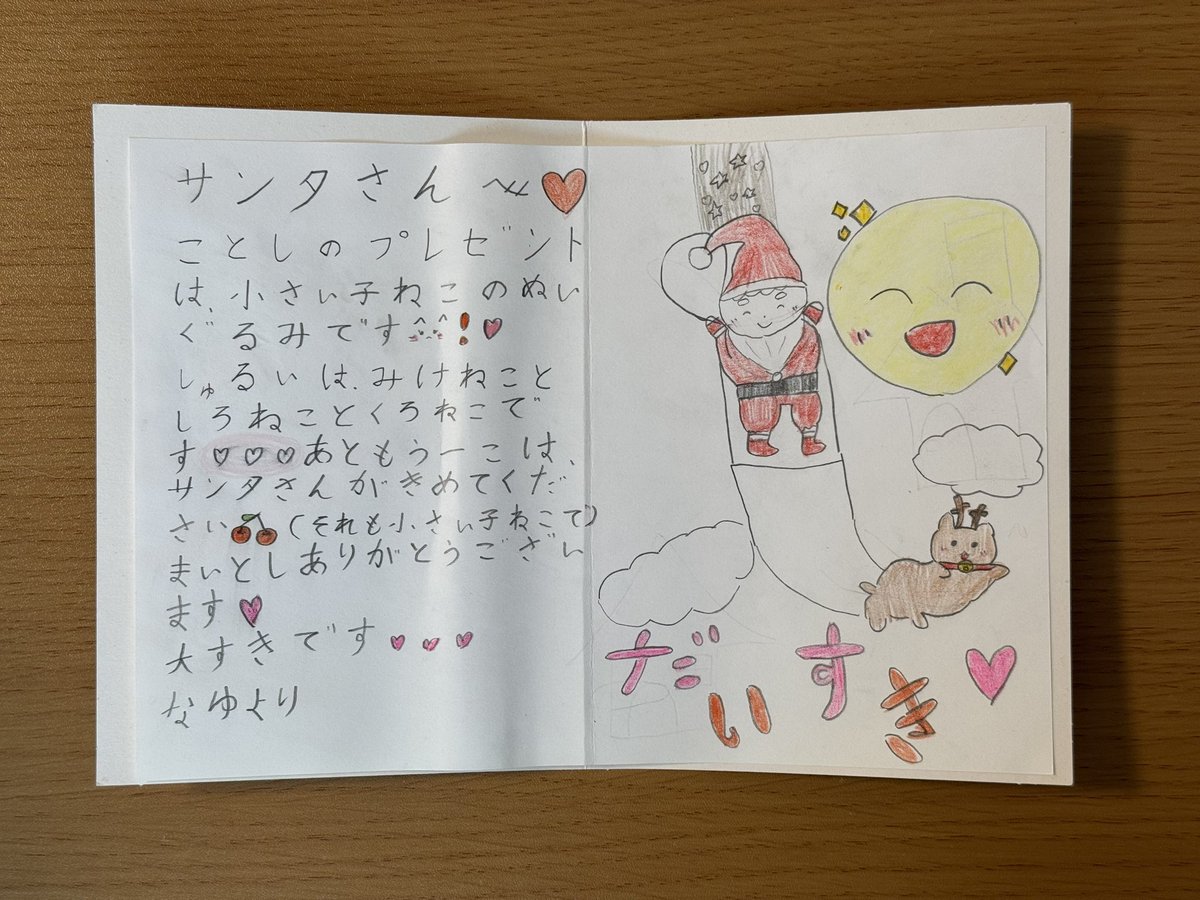 サンタさんへ♥
ことしのプレゼント
は、小さい子ねこのぬい
ぐるみです^ ^❗♥
しゅるいは、みけねこと
しろねこと くろねこで
す♡♡♡あともう一こは、
サンタさんがきめてくだ
さい🍒(それも小さい子ねこで)
まいとしありがとうござい
ます♥
大すきです♥♥♥
なゆより
だいすき♥